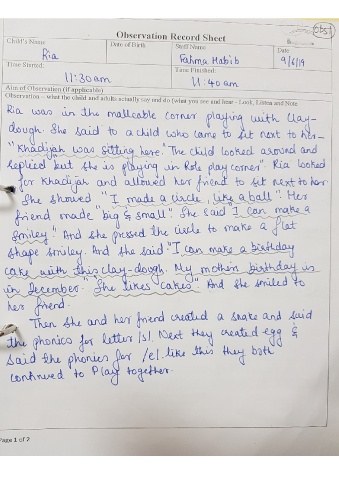 Obs 1
Observation Record Sheet
Child's Name
Date of Birth
Staff Name
Date
Ria
Fahma Habib
9/6/19
Time Started:
Time Finished:
11:30am
11:40am
Aim of Observation (if applicable)
Observation – what the child and adults actually say and do (what you see and hear - Look, Listen and Note
Ria was in the malleable corner playing with Clay-
dough. She said to a child who came to sit next to her-
"Khadijah was sitting here." The child looked around and
replied but she is playing in Role play corner". Ria looked
for Khadijah and allowed her friend to sit next to her.
She showed, "I made a circle, like a ball". Her
friend made "big & small". She said "I can make a
Smiley." And she pressed the circle to make a flat
shape smiley. And she said "I can make a birthday
cake with this clay-dough. My mother's birthday is
in December." "She likes cakes". And she smiled to
her friend.
Then she and her friend created a snake and said
the phonics for letter /s/. Next they created egg &
said the phonics for /e/. like this they both
continued to Play together.
Page 1 of 2